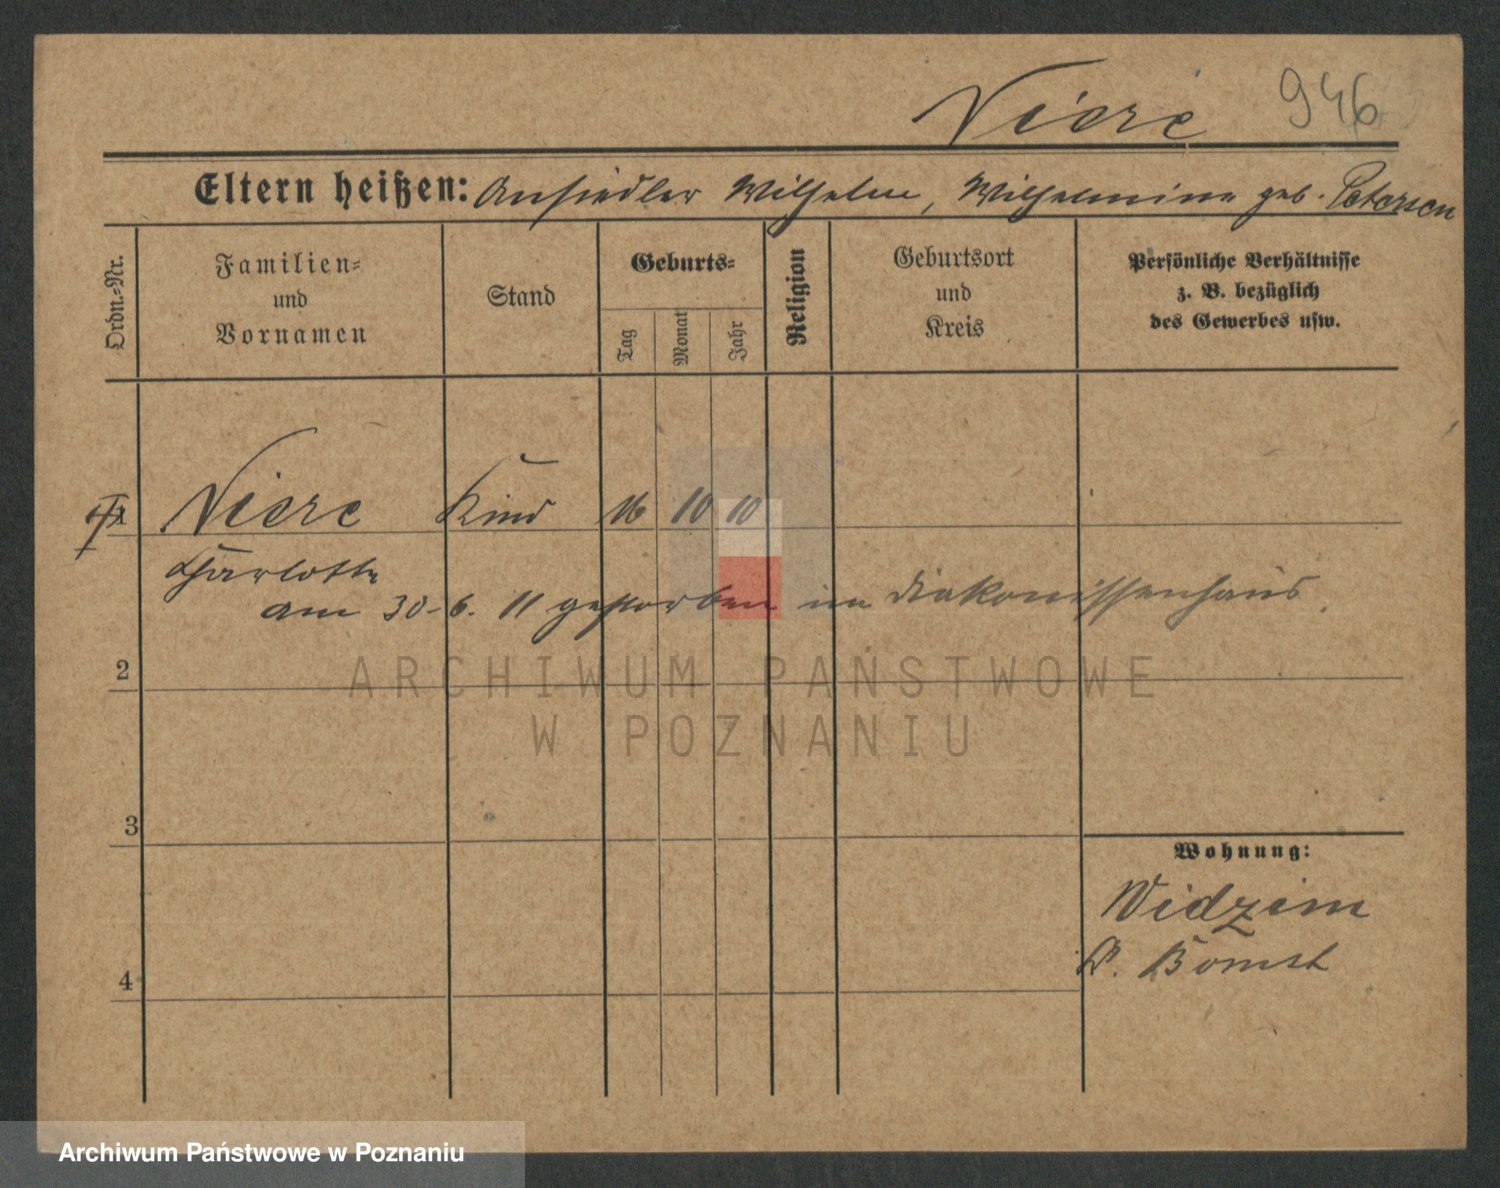 Viere 946
Eltern heißen: Ansiedler Wilhelm, Wilhelmine geb. Petersen
Ordn.-Nr.
Familien- und Vornamen
Stand
Geburts-
Tag
Monat
Jahr
Religion
Geburtsort und Kreis
Persönliche Verhältnisse
z. B. bezüglich
des Gewerbes usw.
1 Viere Kind 16 10 10
Charlotte
am 30-6. 11 gestorben im Diakonissenhaus.
2
ARCHIWUM PAŃSTWOWE
W POZNANIU
3
Wohnung:
Widzim
K. Bomst
4
Archiwum Państwowe w Poznaniu